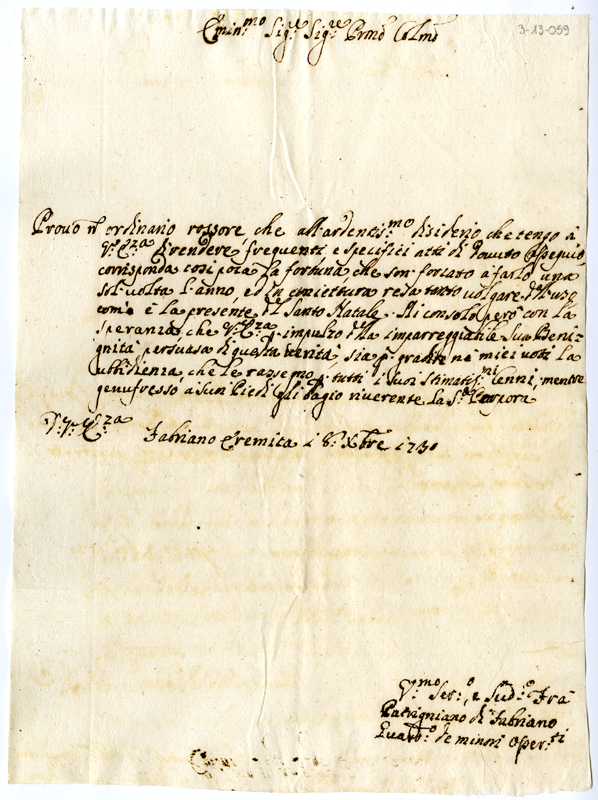 Emin.mo Sig.re Sig.re Prñe Colmo
3-13-059
Prouo nō ordinario rossore, che all'ardentis.mo disiderio che tengo à
V.ra E.za di rendere frequenti, e specifici atti di douuto ossequio
corrisponda così poca la fortuna, che son' forzato à farlo una
sol' uolta l'anno, ed in
resa tanto uolgare dall'uso
com'è la presente del Santo Natale. Mi consolo però con la
speranza, che V.ra E.za p. impulzo della impareggiabile Sua Beni-
gnità persuasa di questa uerità sia p. gradire ne miei uoti la
ubbidienza, che Le rassegno p. tutti i Suoi stimatis.ni Cenni, mentre
genuflesso a Suoi Piedi gli bagio riuerente la S.a Porpora
D. V. E.za
Fabriano Eremita i 8. Xbre 1730
V.mo Ser.o, e Sud.o Fra
Patrigniano di Fabriano
Guard.o de minori Osser.ti